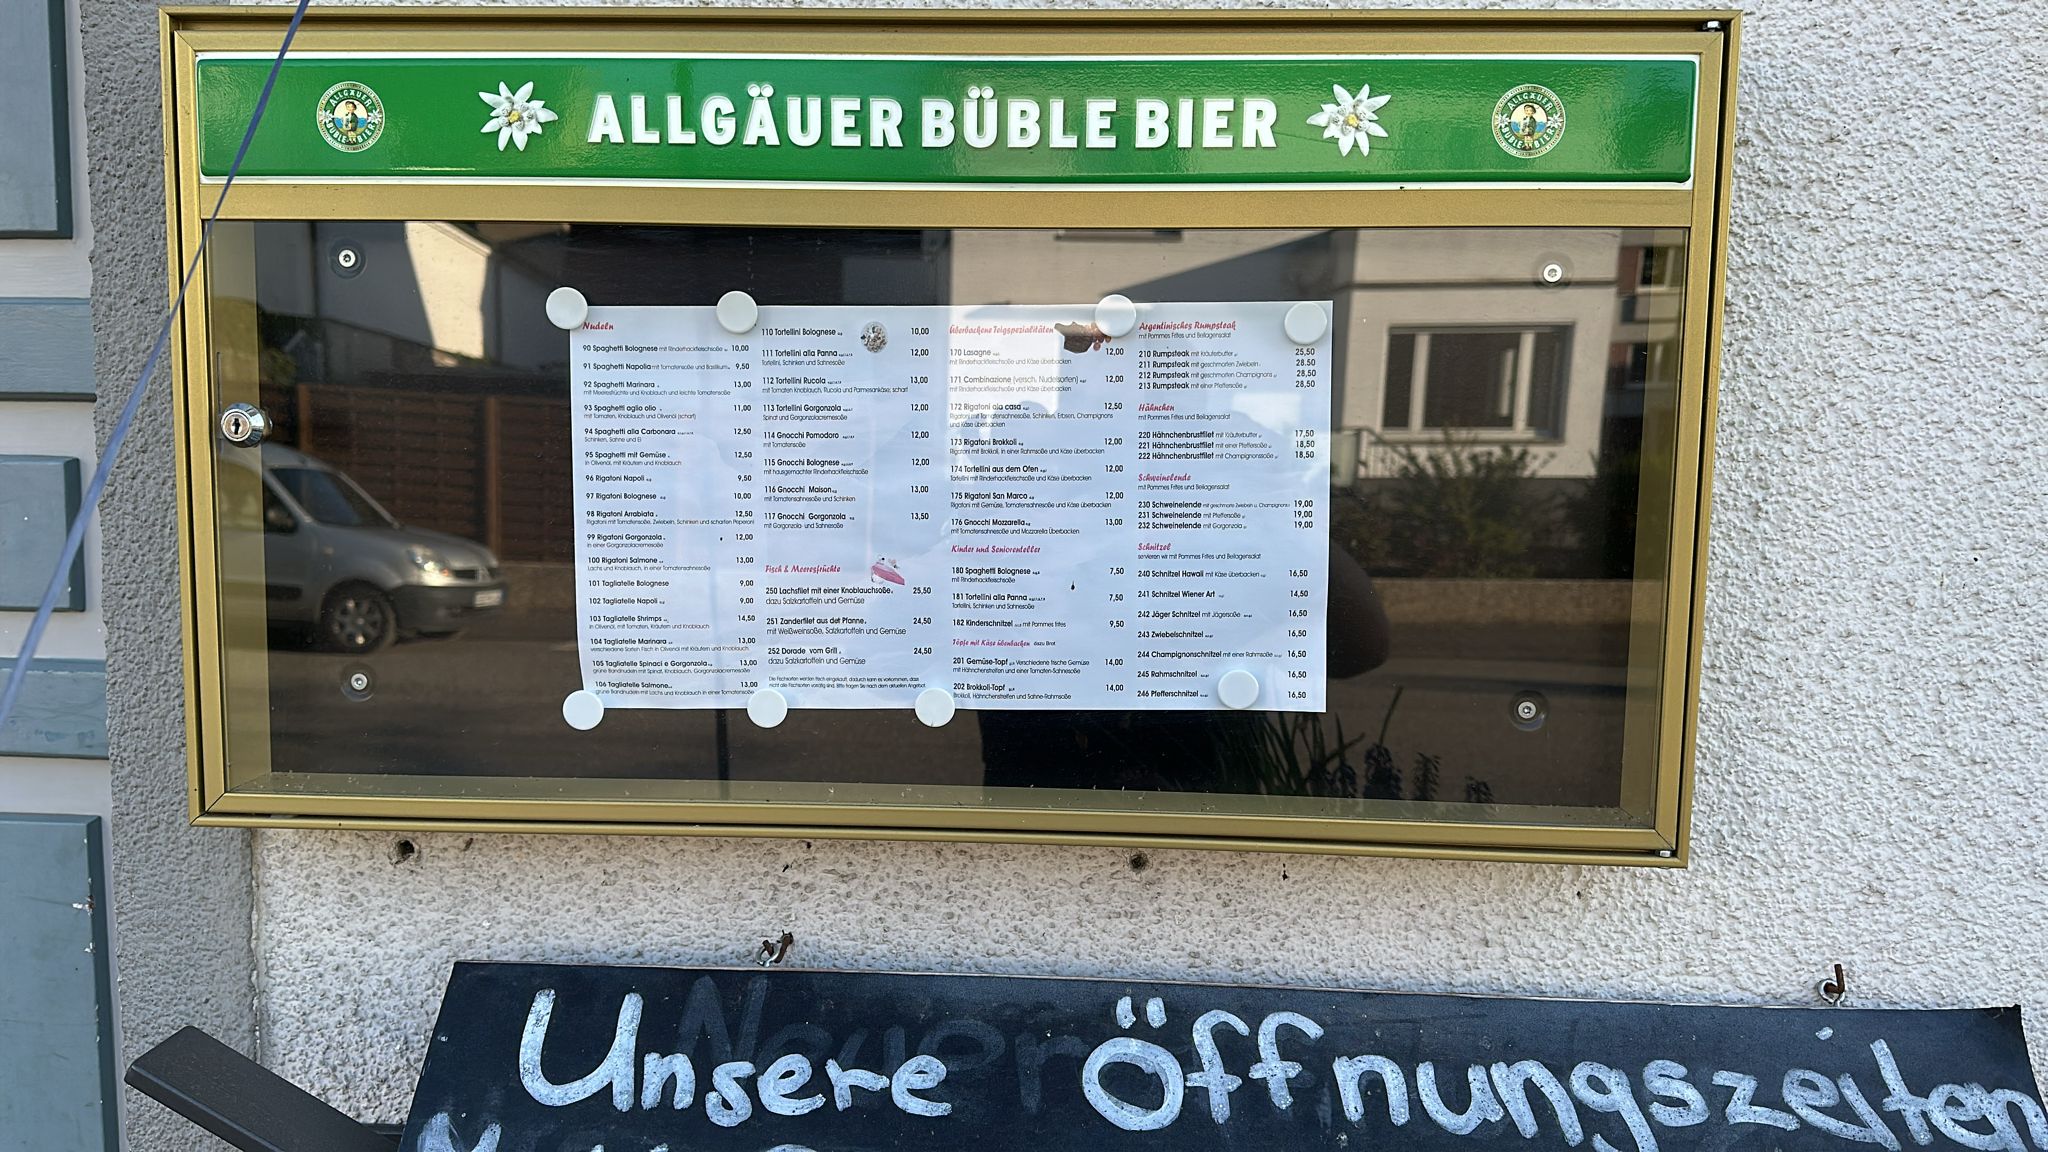 ALLGÄUER BÜBLE BIER
ALLGÄUER BÜBLE BIER
ALLGÄUER BÜBLE BIER
Nudeln
90 Spaghetti Bolognese mit Rinderhackfleischsoße 10,00
91 Spaghetti Napoli mit Tomatensoße und Basilikum 9,50
92 Spaghetti Marinara 13,00
mit Meeresfrüchte und Knoblauch und leichte Tomatensoße
93 Spaghetti aglio olio 11,00
mit Tomaten, Knoblauch und Olivenöl (scharf)
94 Spaghetti alla Carbonara 12,50
Schinken, Sahne und Ei
95 Spaghetti mit Gemüse 12,50
in Olivenöl, mit Kräutern und Knoblauch
96 Rigatoni Napoli 9,50
97 Rigatoni Bolognese 10,00
98 Rigatoni Arrabiata 12,50
Rigatoni mit Tomatensoße, Zwiebeln, Schinken und scharfen Peperoni
99 Rigatoni Gorgonzola 12,00
in einer Gorgonzolacremesoße
100 Rigatoni Salmone 13,00
Lachs und Knoblauch, in einer Tomatensahnesoße
101 Tagliatelle Bolognese 9,00
102 Tagliatelle Napoli 9,00
103 Tagliatelle Shrimps 14,50
in Olivenöl, mit Tomaten, Kräutern und Knoblauch
104 Tagliatelle Marinara 13,00
verschiedene Sorten Fisch in Olivenöl mit Kräutern und Knoblauch
105 Tagliatelle Spinaci e Gorgonzola 13,00
grüne Bandnudeln mit Spinat, Knoblauch, Gorgonzolacremesoße
106 Tagliatelle Salmone 13,00
grüne Bandnudeln mit Lachs und Knoblauch in einer Tomatensoße
110 Tortellini Bolognese 10,00
111 Tortellini alla Panna 12,00
Tortellini, Schinken und Sahnesoße
112 Tortellini Rucola 13,00
mit Tomaten Knoblauch, Rucola und Parmesankäse, scharf
113 Tortellini Gorgonzola 12,00
Spinat und Gorgonzolacremesoße
114 Gnocchi Pomodoro 12,00
mit Tomatensoße
115 Gnocchi Bolognese 12,00
mit hausgemachter Rinderhackfleischsoße
116 Gnocchi Maison 13,00
mit Tomatensahnesoße und Schinken
117 Gnocchi Gorgonzola 13,50
mit Gorgonzola- und Sahnesoße
Fisch & Meeresfrüchte
250 Lachsfilet mit einer Knoblauchsoße 25,50
dazu Salzkartoffeln und Gemüse
251 Zanderfilet aus der Pfanne 24,50
mit Weißweinsoße, Salzkartoffeln und Gemüse
252 Dorade vom Grill 24,50
dazu Salzkartoffeln und Gemüse
Die Fischsorten werden frisch eingekauft, dadurch kann es vorkommen, dass
nicht alle Fischsorten vorrätig sind. Bitte fragen Sie nach dem aktuellen Angebot.
Überbackene Teigspezialitäten
170 Lasagne 12,00
mit Rinderhackfleischsoße und Käse überbacken
171 Combinazione (versch. Nudelsorten) 12,00
mit Rinderhackfleischsoße und Käse überbacken
172 Rigatoni ala casa 12,50
Rigatoni mit Tomatensahnesoße, Schinken, Erbsen, Champignons
und Käse überbacken
173 Rigatoni Brokkoli 12,00
Rigatoni mit Brokkoli, in einer Rahmsoße und Käse überbacken
174 Tortellini aus dem Ofen 12,00
Tortellini mit Rinderhackfleischsoße und Käse überbacken
175 Rigatoni San Marco 12,00
Rigatoni mit Gemüse, Tomatensahnesoße und Käse überbacken
176 Gnocchi Mozzarella 13,00
mit Tomatensahnesoße und Mozzarella Überbacken
Kinder und Seniorenteller
180 Spaghetti Bolognese 7,50
mit Rinderhackfleischsoße
181 Tortellini alla Panna 7,50
Tortellini, Schinken und Sahnesoße
182 Kinderschnitzel mit Pommes frites 9,50
Töpfe mit Käse überbacken dazu Brot
201 Gemüse-Topf Verschiedene frische Gemüse 14,00
mit Hähnchenstreifen und einer Tomaten-Sahnesoße
202 Brokkoli-Topf 14,00
Brokkoli, Hähnchenstreifen und Sahne-Rahmsoße
Argentinisches Rumpsteak
mit Pommes Frites und Beilagensalat
210 Rumpsteak mit Kräuterbutter 25,50
211 Rumpsteak mit geschmorten Zwiebeln 28,50
212 Rumpsteak mit geschmorten Champignons 28,50
213 Rumpsteak mit einer Pfeffersoße 28,50
Hähnchen
mit Pommes Frites und Beilagensalat
220 Hähnchenbrustfilet mit Kräuterbutter 17,50
221 Hähnchenbrustfilet mit einer Pfeffersoße 18,50
222 Hähnchenbrustfilet mit Champignonsoße 18,50
Schweinelende
mit Pommes Frites und Beilagensalat
230 Schweinelende mit geschmorte Zwiebeln u. Champignons 19,00
231 Schweinelende mit Pfeffersoße 19,00
232 Schweinelende mit Gorgonzola 19,00
Schnitzel
servieren wir mit Pommes Frites und Beilagensalat
240 Schnitzel Hawaii mit Käse überbacken 16,50
241 Schnitzel Wiener Art 14,50
242 Jäger Schnitzel mit Jägersoße 16,50
243 Zwiebelschnitzel 16,50
244 Champignonschnitzel mit einer Rahmsoße 16,50
245 Rahmschnitzel 16,50
246 Pfefferschnitzel 16,50
Unsere Öffnungszeiten